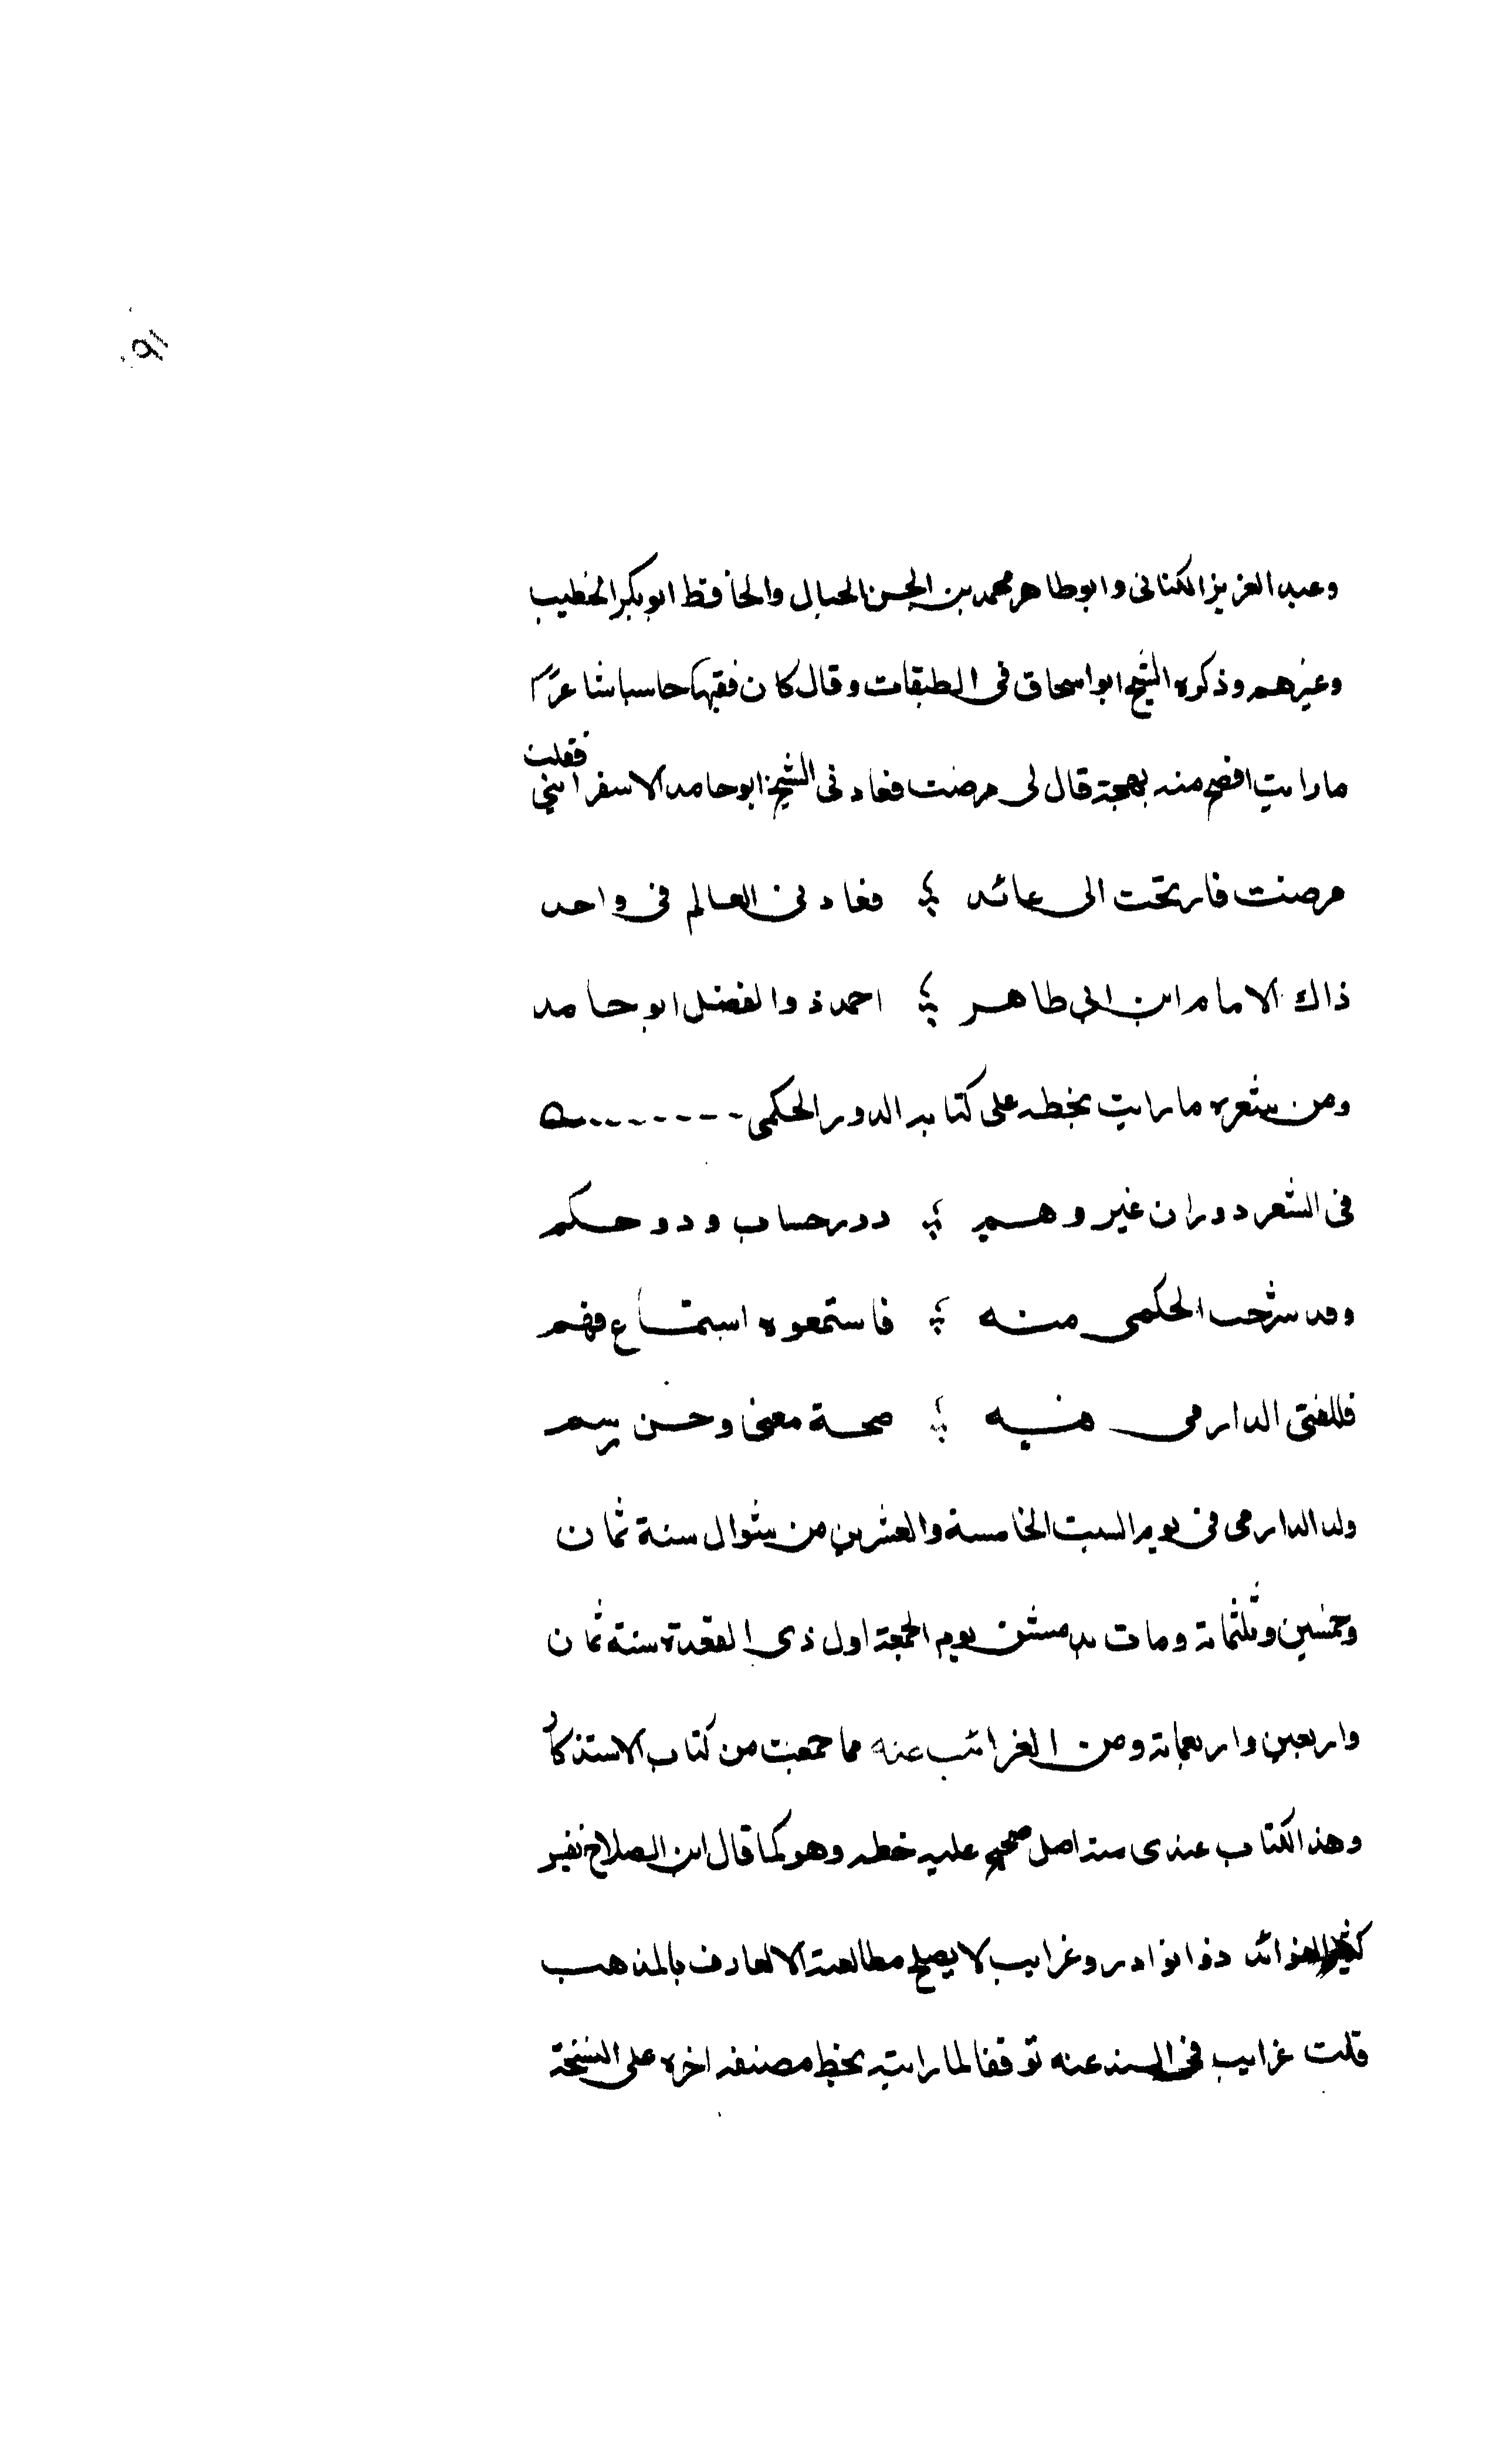 ٩١
وعبد العزيز الكتانى وابوطاهر محمد بن الحسن الحبال والحافظ ابو بكر الخطيب
وغيرهم وذكره الشيخ ابو اسحاق فى الطبقات وقال كان فقيها حاسبا شاعرا
مارايت افصح منه بهجة قال لى مرضت فعادنى الشيخ ابو حامد الاسفراينى فقلت
مرضت فارتحت الى عائد ؛ فعادنى العالم فى واحد
ذاك الامام ابن ابى طاهر ؛ احمد ذو الفضل ابو حامد
ومن شعره مارايت بخطه على كتابه الدور الحكمى
فى الشعر دوران غير وهم ؛ دور حساب ودو حكم
وقد شرحت الحكمى منه ؛ فاستمعوه استماع فهم
فللفتى الدارمى فيه ؛ صحة معنى وحسن رسم
ولد الدارمى فى يوم السبت الخامسة والعشرين من شوال سنة ثمان
وخمسين وثلثماة ومات بدمشق يوم الجمعة اول ذى القعدة سنة ثمان
واربعين واربعماة ومن الغرائب عنه مما جمعت من كتاب الاستذكار
وهذا الكتاب عندى منه اصل صحيح عليه خطه وهو كما قال ابن الصلاح نفير
كثير الفوائد ذو انوادر وغرايب لا يصلح مطالعة الا لعارف بالمذهب
قلت غرايب فى السند عنه توقفا لما رايته بخط مصنفه اخره على النسخة